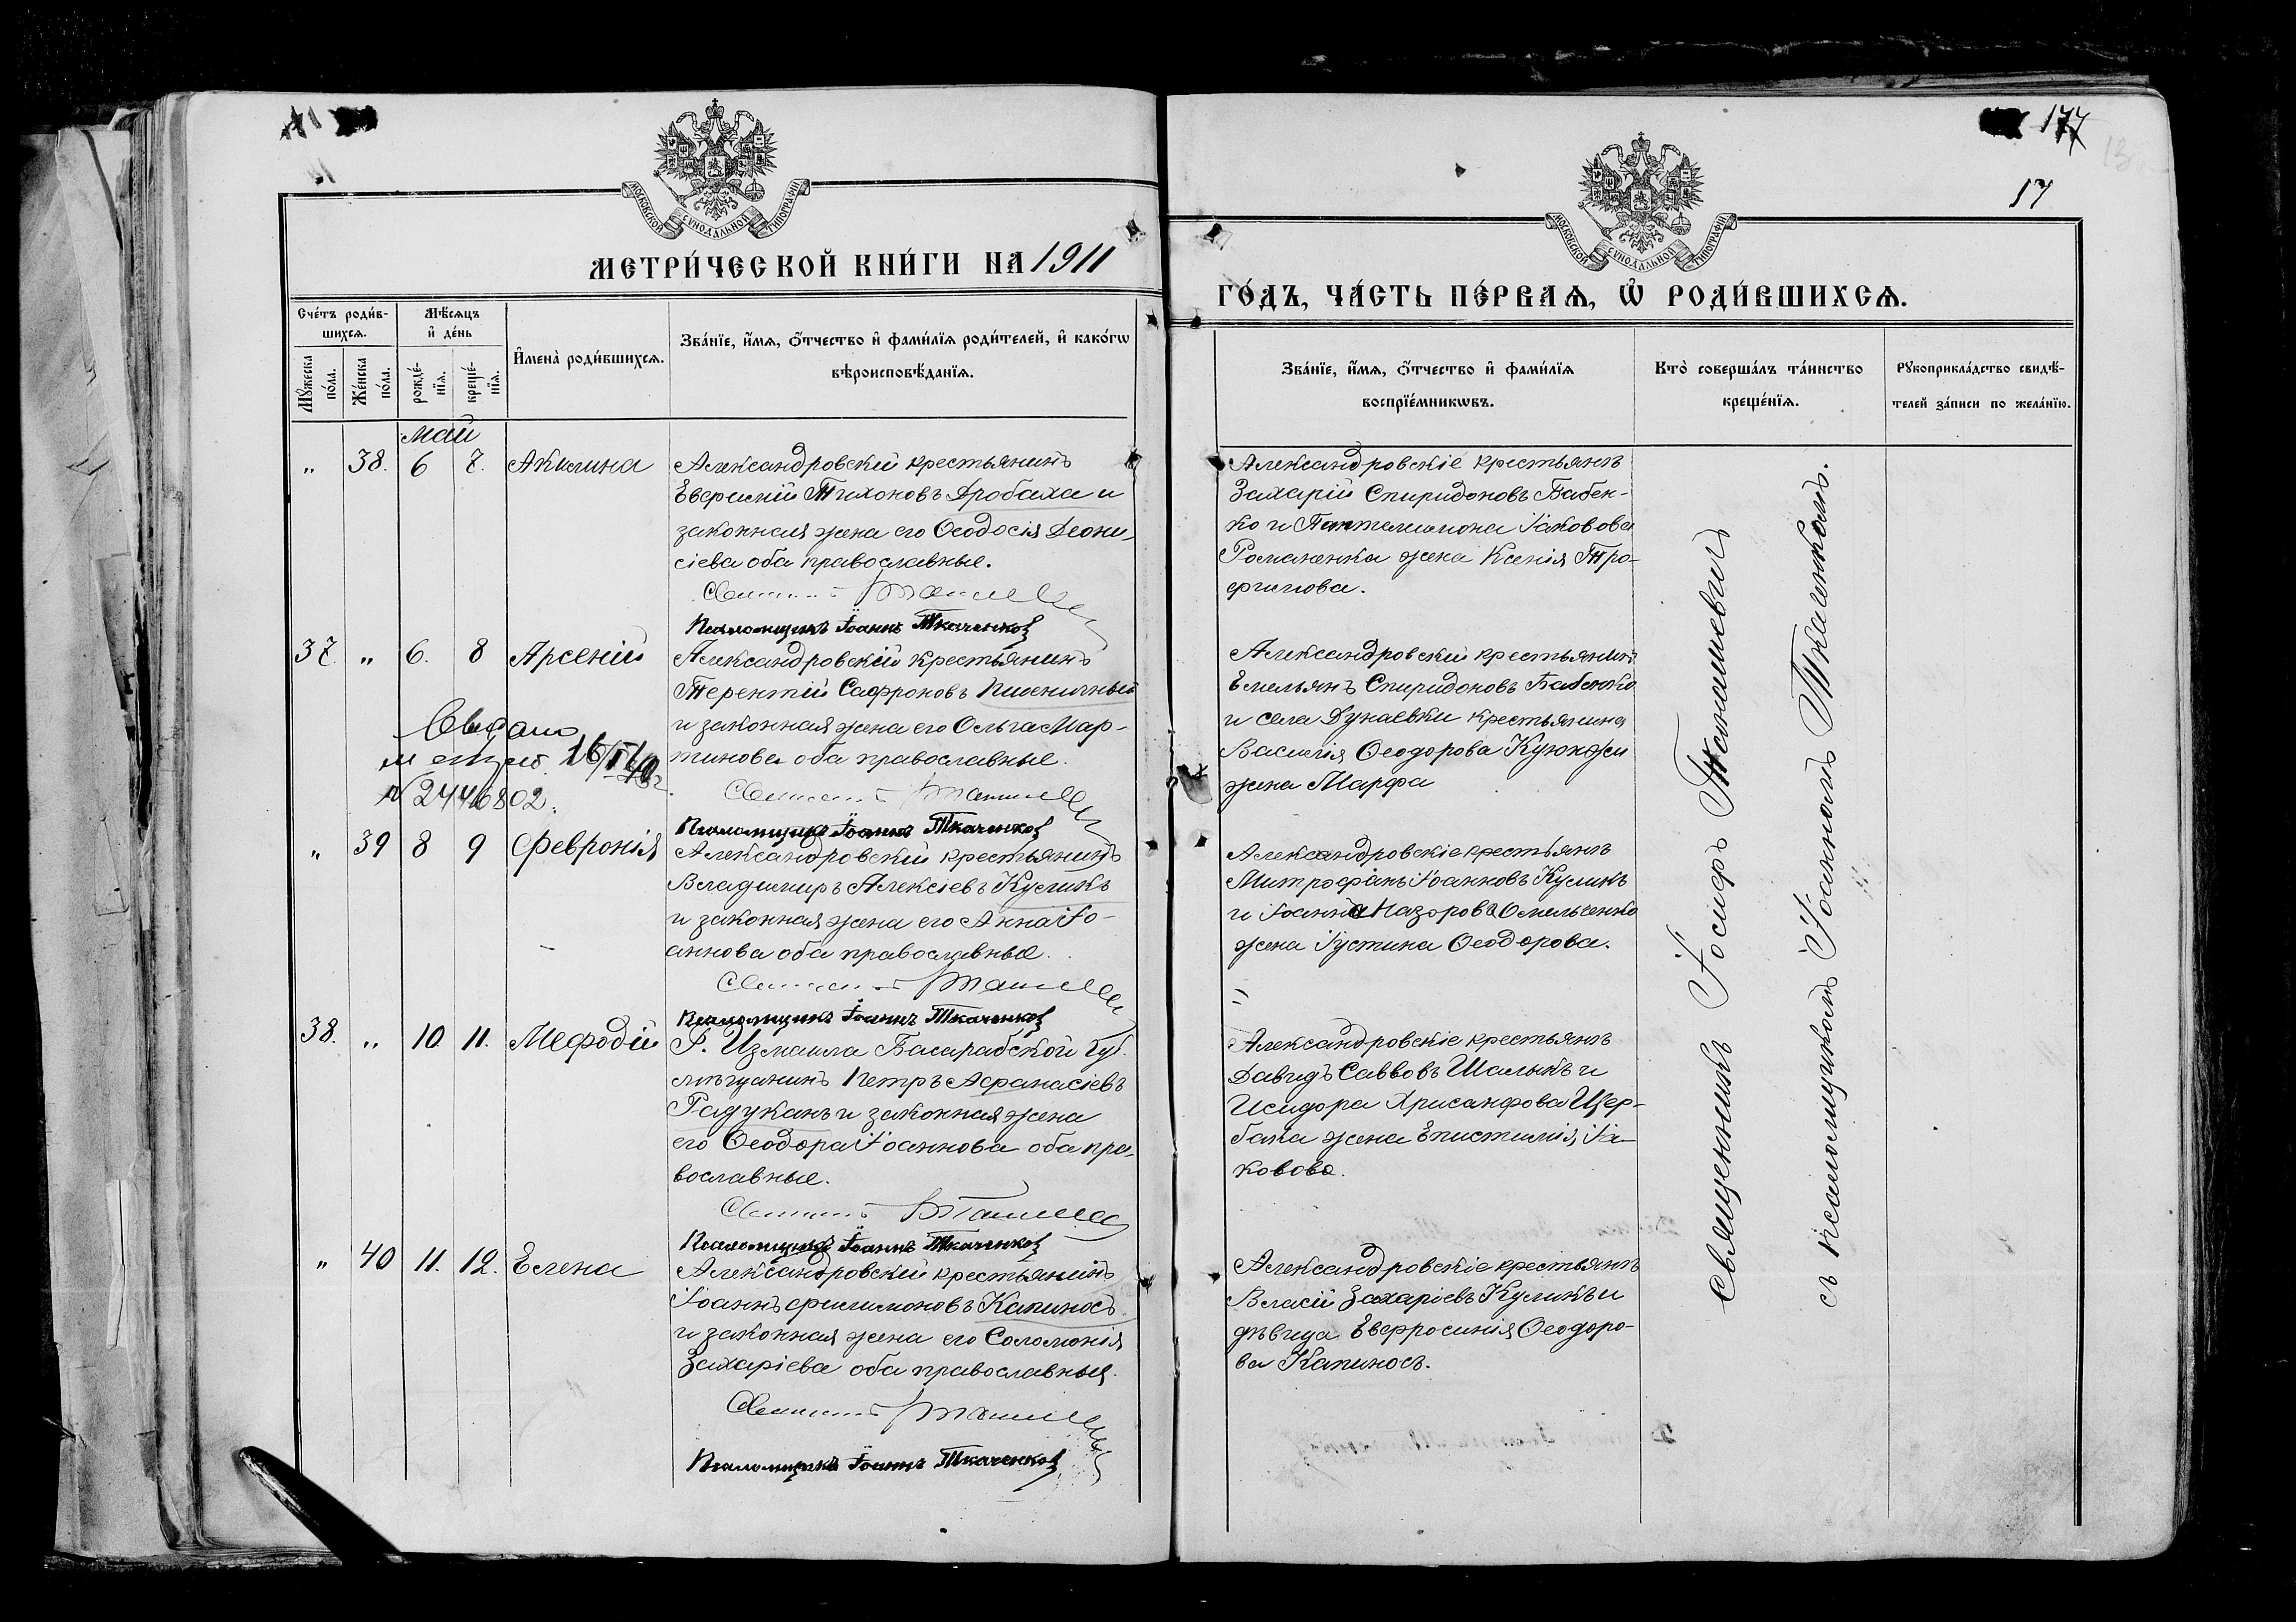 177
17
МОСКОВСКОЙ СѴНОДАЛЬНОЙ ТИПОГРАФІИ
МОСКОВСКОЙ СѴНОДАЛЬНОЙ ТИПОГРАФІИ
МЕТРИ́ЧЕСКОЙ КНИ́ГИ НА 1911
ГО́ДЪ, ЧА́СТЬ ПЕ́РВАѦ, Ѽ РОДИ́ВШИХСѦ.
Сче́тъ роди́в-
шихсѧ.
Мꙋжеска по́ла.
Же́нска по́ла.
Мѣ́сѧцъ
и҆ де́нь
рожде́-
нїѧ.
креще́-
нїѧ.
И҆мена̀ роди́вшихсѧ.
Зва́нїе, и҆́мѧ, ѻ҆́тчество и҆ фами́лїѧ роди́телей, и҆ како́гѡ
вѣроисповѣ́данїѧ.
Зва́нїе, и҆́мѧ, ѻ҆́тчество и҆ фами́лїѧ
воспрїе́мникѡвъ.
Кто̀ соверша́лъ та́инство
креще́нїѧ.
Рꙋкоприкла́дство свидѣ́-
телей за́писи по жела́нїю.
май
" 38. 6 7. Акилина
Александровскій крестьянинъ
Евфимій Тихоновъ Дробаха и
законная жена его Ѳеодосія Деони-
сіева оба православные.
Псаломщикъ Іоаннъ Ткаченко
Александровскіе крестьяне
Захарій Спиридоновъ Бабен-
ко и Пантелимона Іаковова
Романенка жена Ксенія Тро-
фимова.
37. " 6. 8 Арсеній
Александровскій крестьянинъ
Терентій Сафроновъ Пшеничный
и законная жена его Ольга Мар-
тинова оба православные.
Псаломщикъ Іоаннъ Ткаченко
16/II 40
N 2446802.
Александровскій крестьянинъ
Емельянъ Спиридоновъ Бабенко
и села Дунаевки крестьянина
Василія Ѳеодорова Куюнжи
жена Марфа
" 39 8 9 Февронія
Александровскій крестьянинъ
Владимиръ Алексіевъ Куликъ
и законная жена его Анна Іо-
аннова оба православные.
Псаломщикъ Іоаннъ Ткаченко
Александровскіе крестьяне
Митрофанъ Іоанновъ Куликъ
и Іоанна Назорова Омельченко
жена Іустина Ѳеодорова.
38. " 10. 11. Мефодій
Г. Измаила Басарабской губ.
мѣщанинъ Петръ Афанасіевъ
Радуканъ и законная жена
его Ѳеодора Іоаннова оба пра-
вославные.
Псаломщикъ Іоаннъ Ткаченко
Александровскіе крестьяне
Давидъ Саввовъ Шалыкъ и
Исидора Хрисанфова Щер-
бака жена Епистимія Іа-
ковова.
" 40 11. 12. Елена
Александровскій крестьянинъ
Іоаннъ Филимоновъ Капиносъ
и законная жена его Соломонія
Захаріева оба православные.
Псаломщикъ Іоаннъ Ткаченко
Александровскіе крестьяне
Власій Захаріевъ Куликъ и
дѣвица Евфросинія Ѳеодоро-
ва Капиносъ.
Священникъ Іосифъ
съ псаломщикомъ Іоанномъ Ткаченкомъ.